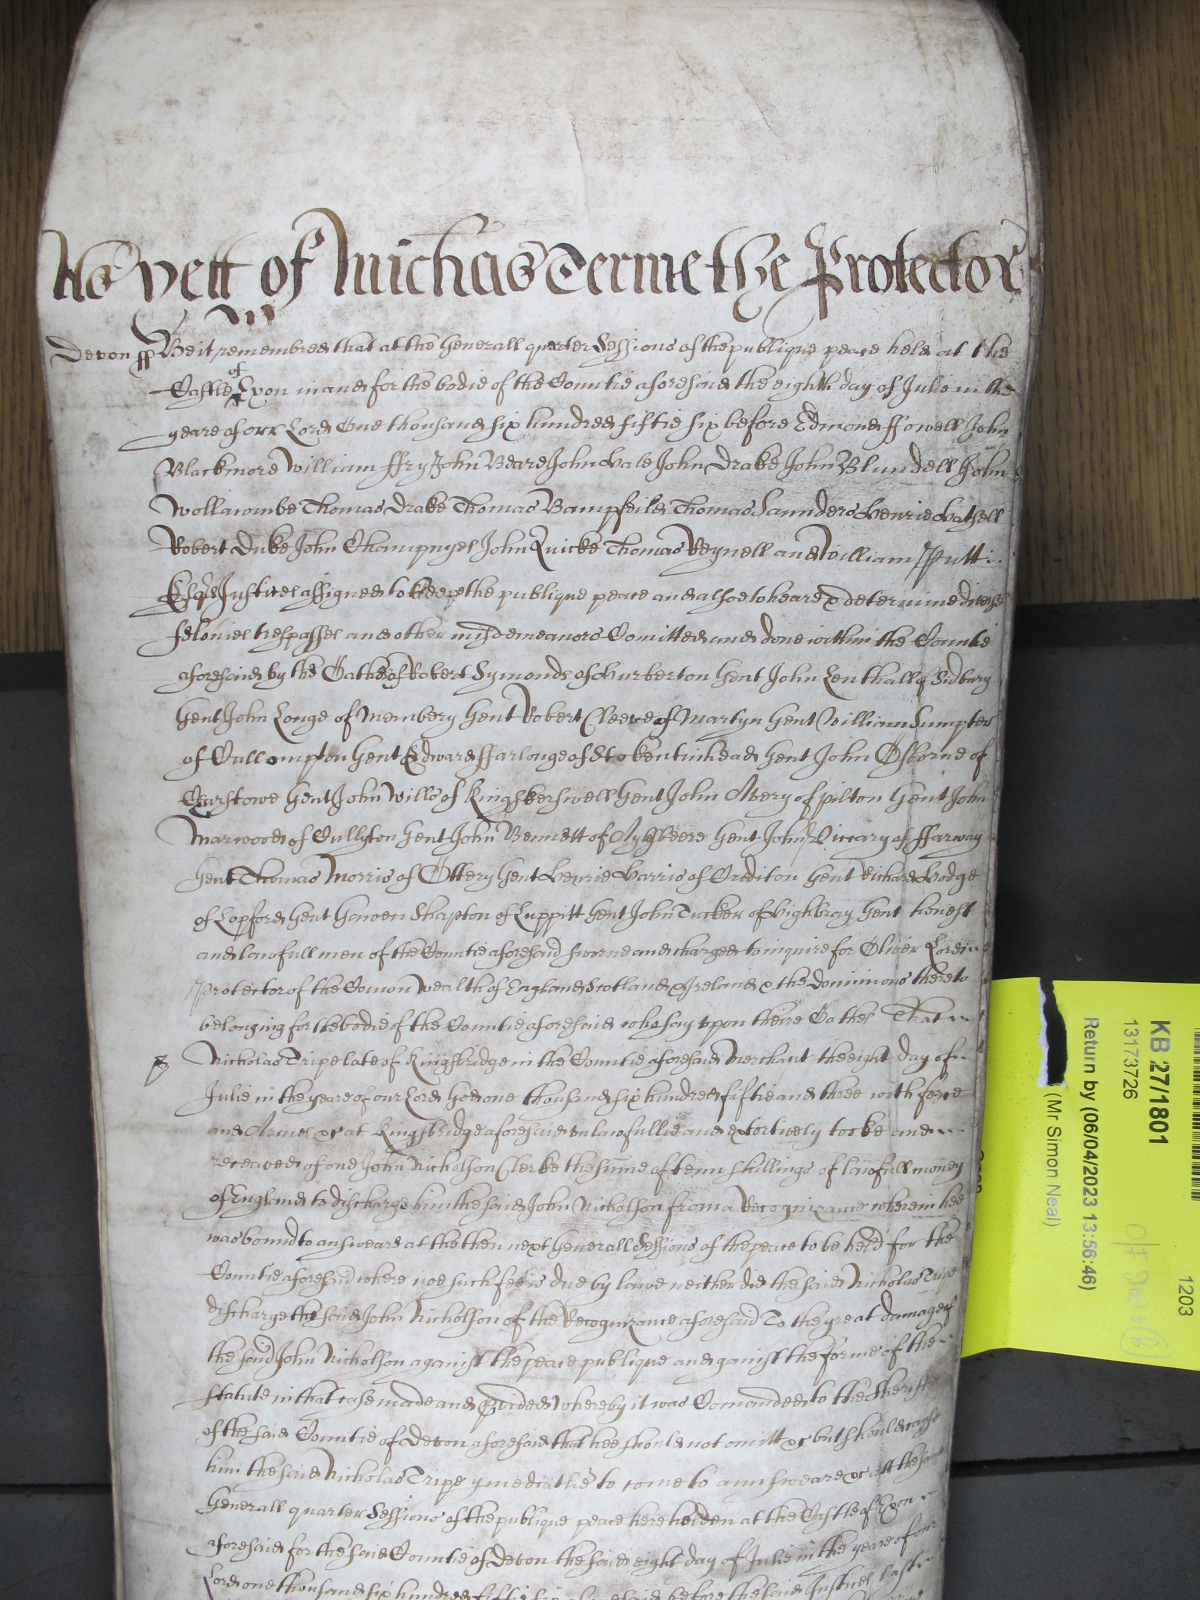 As yett of Michas Terme the Protector
Devon ss Be it remembred that at the Generall quarter Sessions of the publique peace held at the
Castle of Exon in and for the bodie of the Countie aforesaid the eighth day of Julie in the
yeare of our Lord One thousand six hundred fiftie six before Edmond ffowell John
Blackmore William ffry John Beare John Vale John Drake John Blundell John
Wollacombe Thomas Drake Thomas Bampfeild Thomas Saunders Henrie Hatsell
Robert Duke John Champnyes John Quicke Thomas Reynell and William Putt
Esqrs Justices assigned to keepe the publique peace and alsoe to heare & determine divers
felonies trespasses and other misdemeanors Comitted and done within the Countie
aforesaid by the Oathes of Robert Symonds of Hurberton Gent John Lenthall of Sidbury
Gent John Longe of Membery Gent Robert Cleeve of Martyn Gent William Sumpter
of Cullompton Gent Edward ffarlonge of Stokentinhead Gent John Osborne of
Gent John Wills of Kingskerswell Gent John Avery of pilton Gent John
Marwood of Cullyton Gent John Bennett of Gent John Viccary of ffarway
Gent Thomas Morris of Ottery Gent Henrie Harris of Crediton Gent Richard Hodge
of Lopford Gent Shapton of Luppitt Gent John Tucker of Highbray Gent honest
and lawfull men of the Countie aforesaid sworne and charged to inquire for Oliver Lord
Protector of the Comon Wealth of England Scotland & Ireland & the dominions thereto
belonging for the bodie of the Countie aforesaid who say upon theire Oathes That
Nicholas Tripe late of Kingsbridge in the Countie aforesaid Merchant the eight day of
Julie in the yeare of our Lord God one thousand six hundred fiftie and three with force
and Armes &c at Kingsbridge aforesaid unlawfullie and extortively tooke and
receaved of one John Nicholson Clerke the sume of tenn shillings of lawfull money
of England to discharge him the said John Nicholson from a Recognizance wherein hee
was bound to answeare at the then next Generall Sessions of the peace to be held for the
Countie aforesaid where noe such fee is due by lawe neither did the said Nicholas Tripe
discharge the said John Nicholson of the Recognizance aforesaid To the great damage of
the said John Nicholson against the peace publique and against the forme of the
statute in that case made and provided Whereby it was Comanded to the Sheriffe
of the said Countie of Devon aforesaid that hee should not omitt &c but should cause
him the said Nicholas Tripe ymediatlie to come to annsweare &c att the said
Generall quarter Sessions of the publique peace here holden at the Castle of Exon
aforesaid for the said Countie of Devon the said eight day of Julie in the yeare of our
Lord one thousand six hundred fiftie six aforesaid before the said Justices last
KB 27/1801
13173726
1203
Return by (06/04/2023 13:56:46)
(Mr Simon Neal)